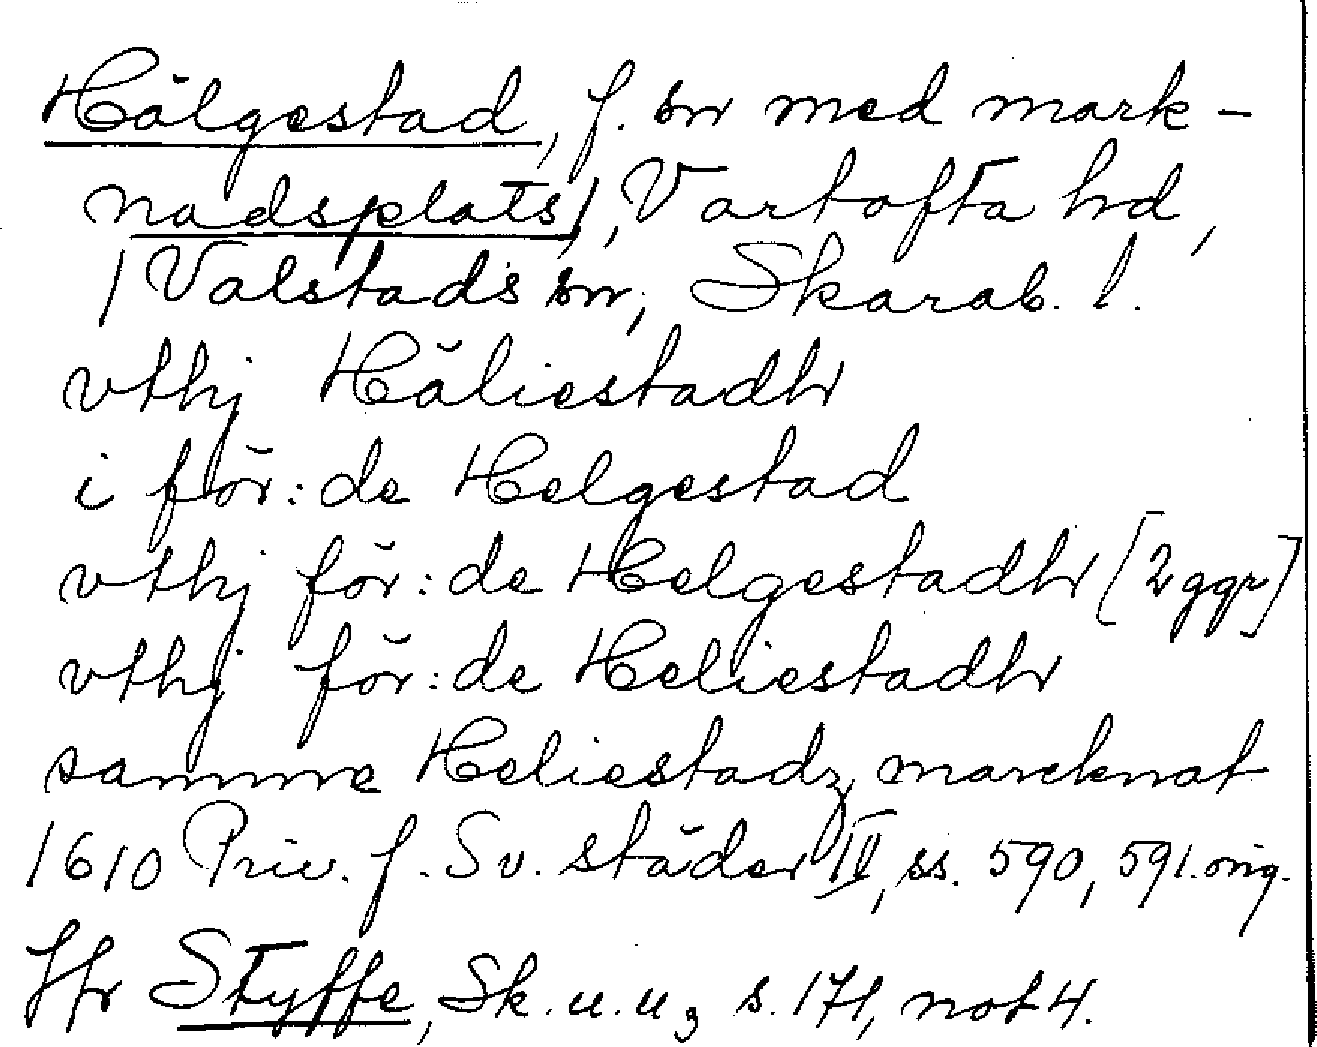 Hälgestad, f. sn med mark-
nadsplats/, Vartofta hd,
/Valstads sn, Skarab. l.
vthj Häliestadh
i för:de Helgestad
vthj för:de Helgestadh [2 ggr]
vthj för:de Heliestadh
samme Heliestadz marcknat
1610 Priv. f. Sv. städer III, ss. 590, 591. orig.
Jfr Styffe, Sk. u. u. 3 s. 171, not 4.